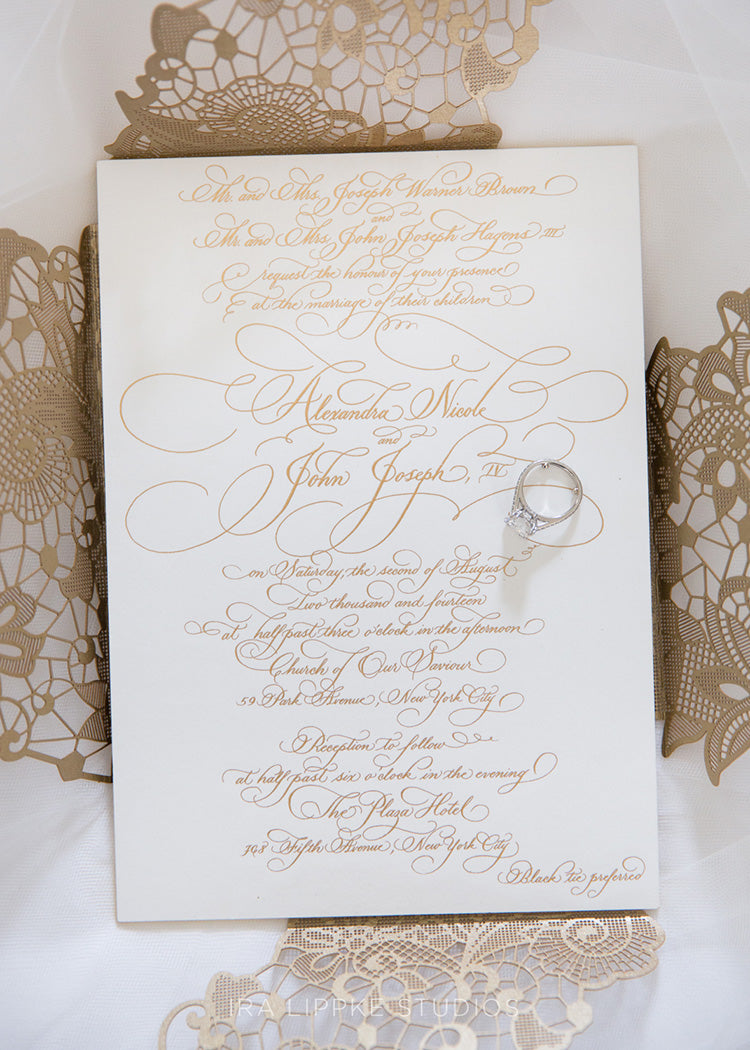 Mr. and Mrs. Joseph Warner Brown
and
Mr. and Mrs. John Joseph Hagens III
request the honour of your presence
at the marriage of their children
Alexandra Nicole
and
John Joseph, IV
on Saturday, the second of August
Two thousand and fourteen
at half past three o'clock in the afternoon
Church of Our Saviour
59 Park Avenue, New York City
Reception to follow
at half past six o'clock in the evening
The Plaza Hotel
768 Fifth Avenue, New York City
Black tie preferred
IRA LIPPKE STUDIOS